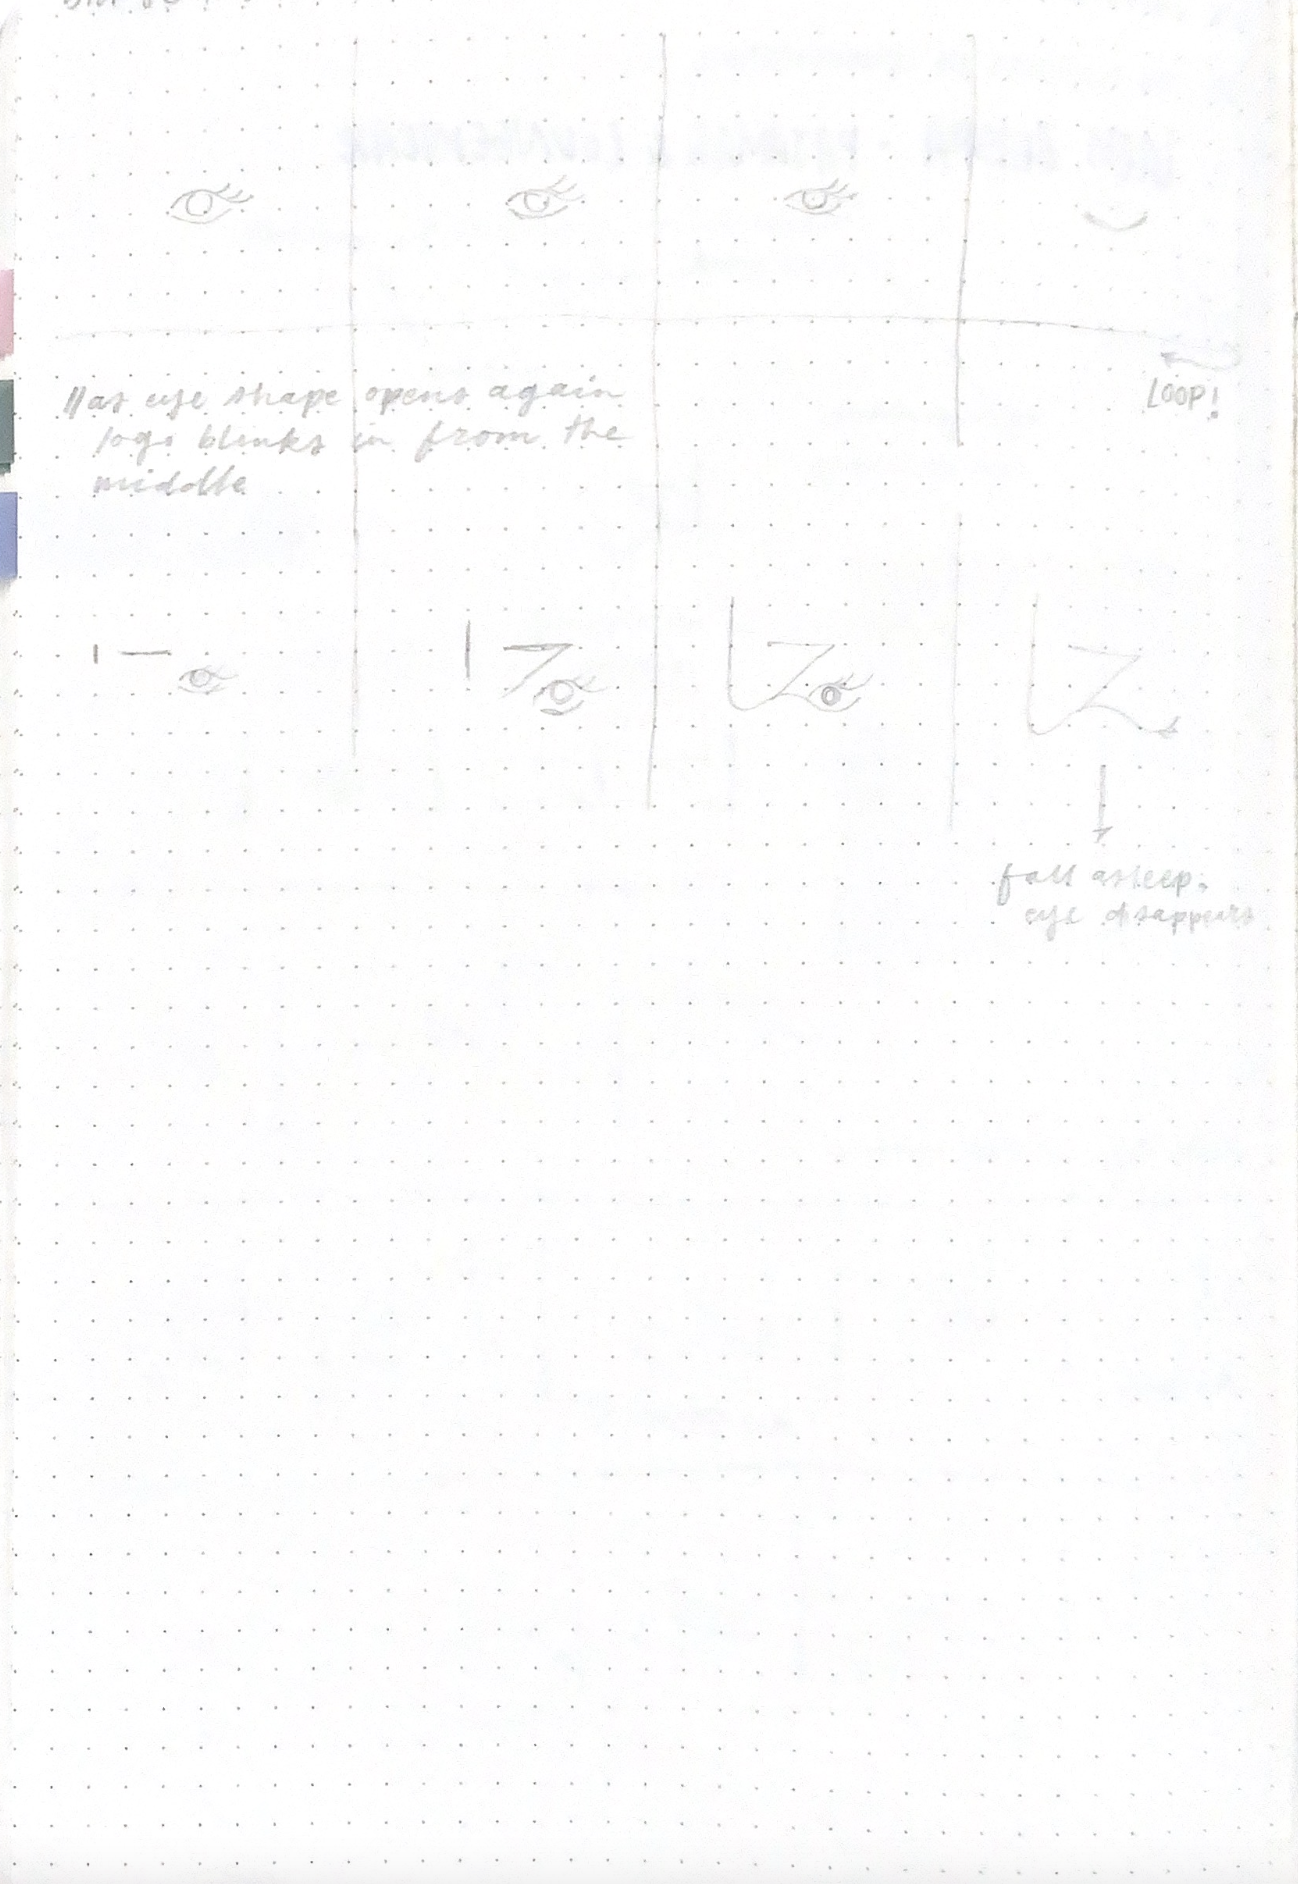 //as eye shape opens again
logo blinks in from the
middle
LOOP!
fall asleep,
eye disappears